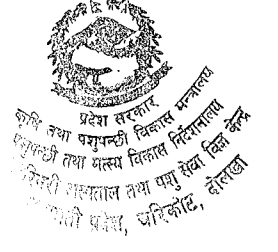 प्रदेश सरकार
कृषि तथा पशुपन्छी विकास मन्त्रालय
पशुपन्छी तथा मत्स्य विकास निर्देशनालय
अस्पताल तथा पशु सेवा विज्ञ केन्द्र
प्रदेश, चरिकोट, दोलखा